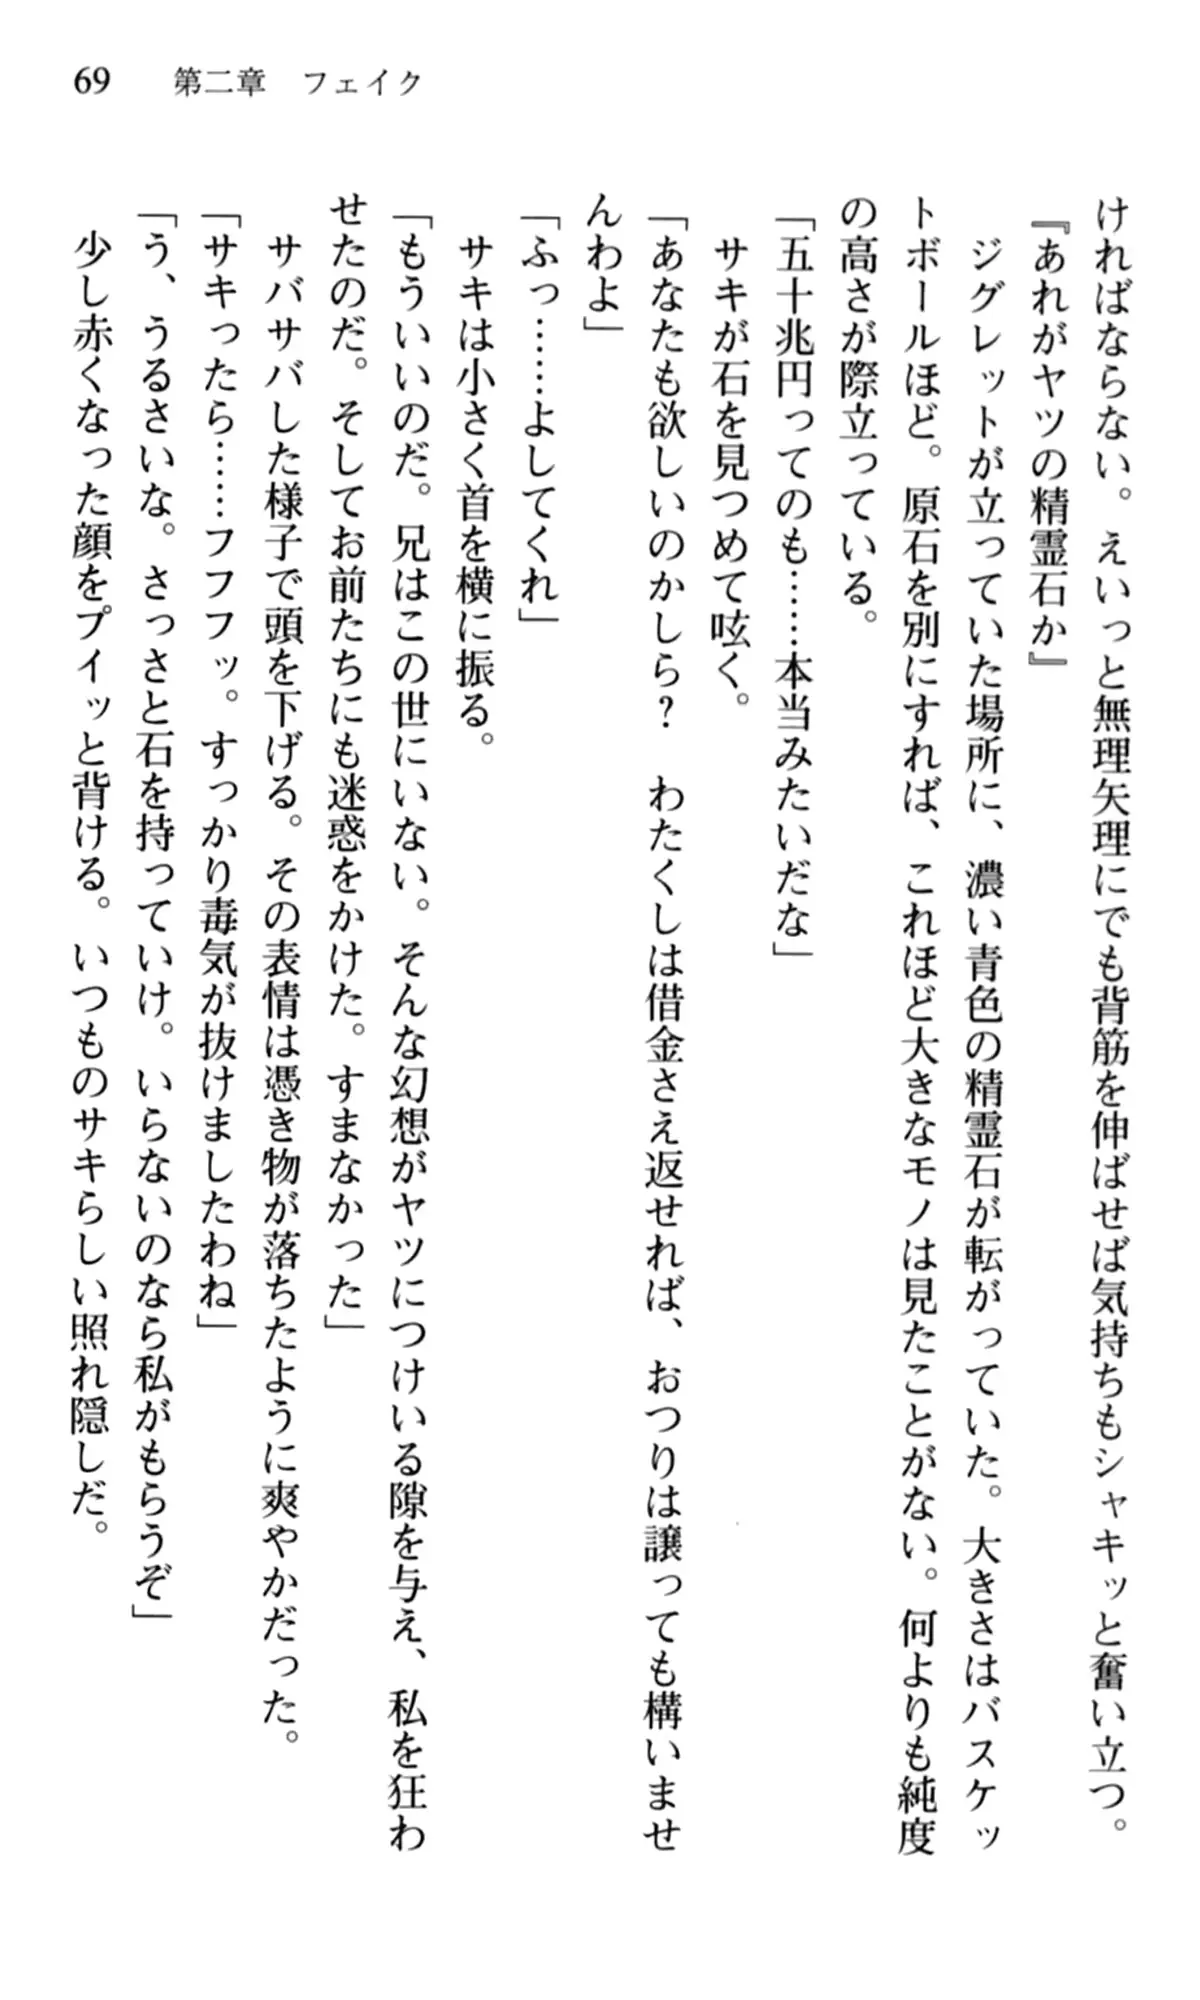 69　第二章　フェイク
ければならない。えいっと無理矢理にでも背筋を伸ばせば気持ちもシャキッと奮い立つ。
『あれがヤツの精霊石か』
　ジグレットが立っていた場所に、濃い青色の精霊石が転がっていた。大きさはバスケッ
トボールほど。原石を別にすれば、これほど大きなモノは見たことがない。何よりも純度
の高さが際立っている。
「五十兆円ってのも……本当みたいだな」
　サキが石を見つめて呟く。
「あなたも欲しいのかしら？　わたくしは借金さえ返せれば、おつりは譲っても構いませ
んわよ」
「ふっ……よしてくれ」
　サキは小さく首を横に振る。
「もういいのだ。兄はこの世にいない。そんな幻想がヤツにつけいる隙を与え、私を狂わ
せたのだ。そしてお前たちにも迷惑をかけた。すまなかった」
　サバサバした様子で頭を下げる。その表情は憑き物が落ちたように爽やかだった。
「サキったら……フフフッ。すっかり毒気が抜けましたわね」
「う、うるさいな。さっさと石を持っていけ。いらないのなら私がもらうぞ」
　少し赤くなった顔をプイッと背ける。いつものサキらしい照れ隠しだ。